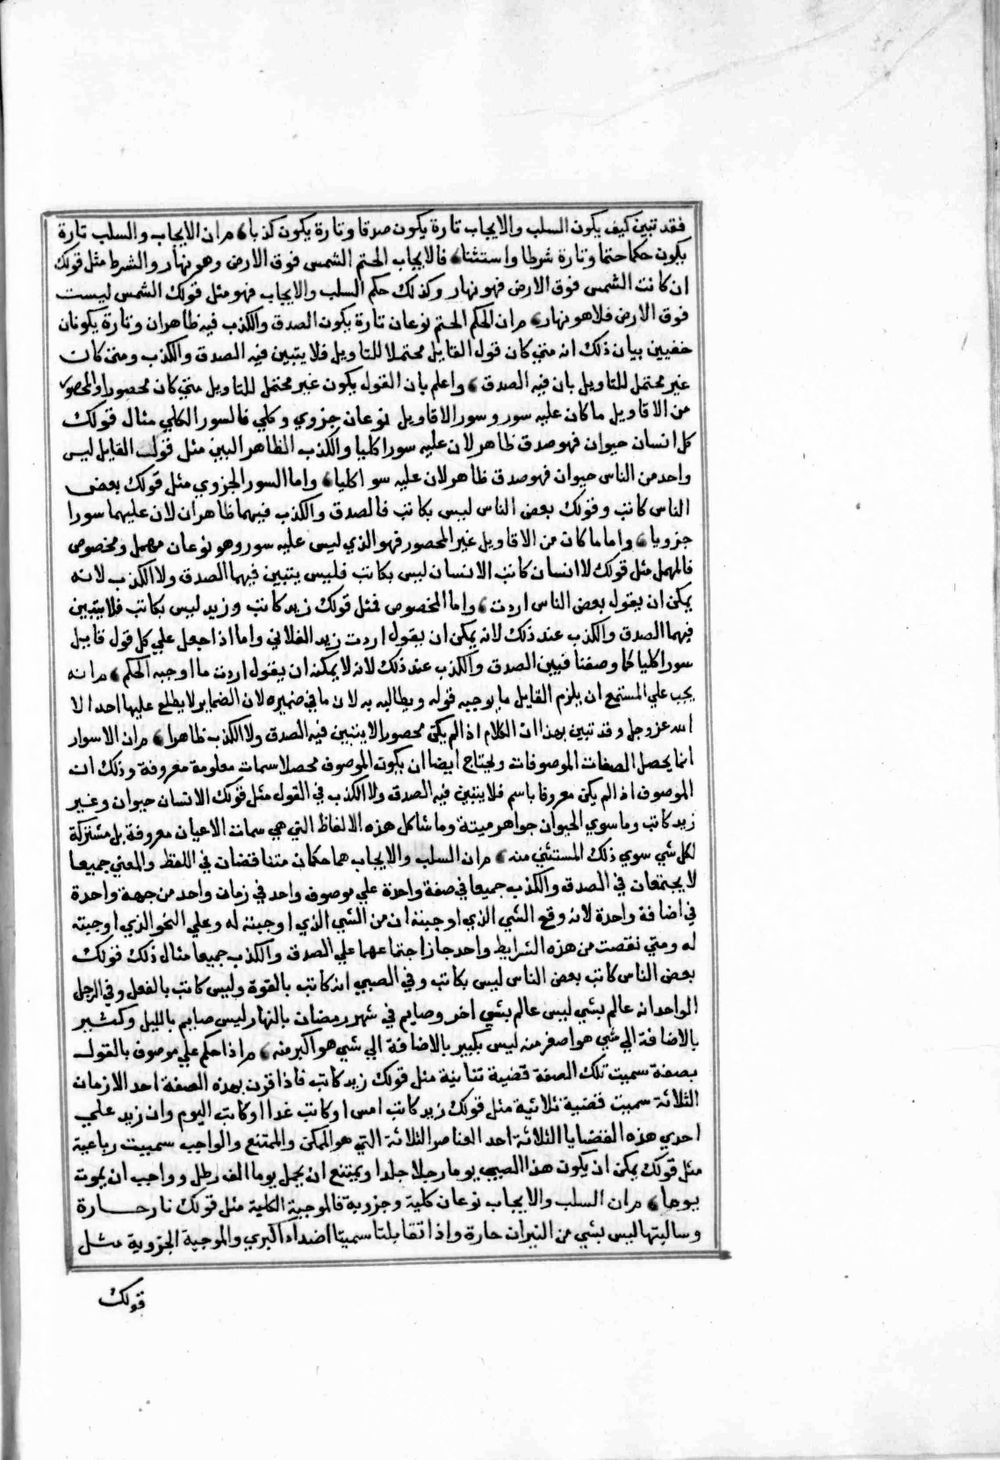 فقد تبين كيف يكون السلب والايجاب تارة يكون صدقا وتارة يكون كذبا، مران الايجاب والسلب تارة
يكون حكما حتما وتارة شرطا واستثنا، فالايجاب الحتم الشمس فوق الارض وهو نهار والشرط مثل قولك
ان كانت الشمس فوق الارض فهو نهار وكذلك حكم السلب والايجاب فهو مثل قولك الشمس ليست
فوق الارض فلا هو نهار، مران الحكم الحتم نوعان تارة يكون الصدق والكذب فيه ظاهران وتارة يكونان
خفيين بيان ذلك انه متي كان قول القايل محتملا للتاويل فلا يتبين فيه الصدق والكذب ومتي كان
غير محتمل للتاويل بان فيه الصدق، واعلم بان القول يكون غير محتمل للتاويل متي كان محصورا والمحصور
من الاقاويل ما كان عليه سور وسور الاقاويل نوعان جزوي وكلي فالسور الكلي مثال قولك
كل انسان حيوان فهو صدق ظاهر لان عليه سورا كليا والكذب الظاهر البين مثل قول القايل ليس
واحد من الناس حيوان فهو صدق ظاهر لان عليه سوا كليا، واما السور الجزوي مثل قولك بعض
الناس كاتب وقولك بعض الناس ليس بكاتب فالصدق والكذب فيهما ظاهران لان عليهما سورا
جزويا، واما ما كان من الاقاويل غير المحصور فهو الذي ليس عليه سور وهو نوعان مهمل ومخصوص
فالمهمل مثل قولك لاانسان كاتب الانسان ليس بكاتب فليس يتبين فيهما الصدق ولا الكذب لانه
يمكن ان يقول بعض الناس اردت، واما المخصوص فمثل قولك زيد كاتب وزيد ليس بكاتب فلا يتبين
فيهما الصدق والكذب عند ذلك لانه يمكن ان يقول اردت زيد الفلاني واما اذا جعل علي كل قول قايل
سورا كليا كما وصفنا فيبين الصدق والكذب عند ذلك لانه لا يمكنه ان يقول اردت ما اوجبه الحكم، مرانه
يجب علي المستمع ان يلزم القايل ما يوجبه قوله ويطالبه به لان ما في ضميره لان الضماير لا يطلع عليها احد الا
الله عز وجل وقد تبين بهذا ان الكلام اذ الم يكن محصورا لا يتبين فيه الصدق ولا الكذب ظاهرا، مران الاسوار
انما يحصل الصفات الموصوفات ويحتاج ايضا ان يكون الموصوف محصلا سمات معلومة معروفة وذلك ان
الموصوف اذ الم يكن معروفا باسم فلا يتبين فيه الصدق ولا الكذب في القول مثل قولك الانسان حيوان وغير
زيد كاتب وما سوي الحيوان جواهر ميتة وما شاكل هذه الالفاظ التي هي سمات الاعيان معروفة بل مشتركة
لكل شي سوي ذلك المستثني منه، مران السلب والايجاب هما حكمان متناقضان في اللفظ والمعني جميعا
لا يجتمعان في الصدق والكذب جميعا في صفة واحدة علي موصوف واحد في زمان واحد من جهة واحدة
في اضافة واحدة لانه وقع الشي الذي اوجبته ان من الشي الذي اوجبته له وعلي النحو الذي اوجبته
له ومتي نقصت من هذه الشرايط واحد جاز اجتماعهما علي الصدق والكذب جميعا مثال ذلك قولك
بعض الناس كاتب بعض الناس ليس بكاتب وفي الصبي انه كاتب بالقوة وليس كاتب بالفعل وفي الرجل
الواحد انه عالم بشي ليس عالم بشي اخر وصايم في شهر رمضان بالنهار ليس صايم بالليل وكثير
بالاضافة الي شي هو اصغر منه ليس بكبير بالاضافة الي شي هو اكبر منه، مراذا حكم علي موصوف بالقول
بصفة سميت تلك الصفة قضية ثنائية مثل قولك زيد كاتب فاذا قرن بهذه الصفة احد الازمان
الثلاثة سميت قضية ثلاثية مثل قولك زيد كاتب امس او كاتب غدا او كاتب اليوم وان زيد علي
احدي هذه القضايا الثلاثة احد العناصر الثلاثة التي هو الممكن والممتنع والواجب سمييت رباعية
مثل قولك يمكن ان يكون هذا الصبي يوما رجلا جلدا ويمتنع ان يحمل يوما الف رطل وواجب ان يموت
يوما، مران السلب والايجاب نوعان كلية وجزوية فالموجبة الكلية مثل قولك نار حارة
وسالبتها ليس بشي من النيران حارة واذا تقابلتا سميتا اضداد اكبري والموجبة الجزوية مثل
قولك